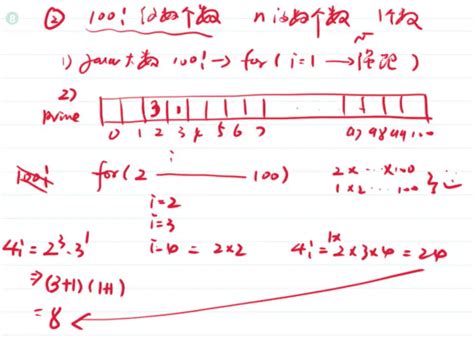 ② 100! 的约数个数 n的约数个数 1个数
1) java大数 100! → for( i=1 → √n 遍历 )
2)
prime 3 1
0 1 2 3 4 5 6 7 97 98 99 100
100! for( 2 — 100) 2×...×100
i 1×2...100
i=2
i=3
4! = 2³·3¹ i=4 = 2×2 4! = 1×2×3×4 = 24
⇒ (3+1)(1+1)
= 8